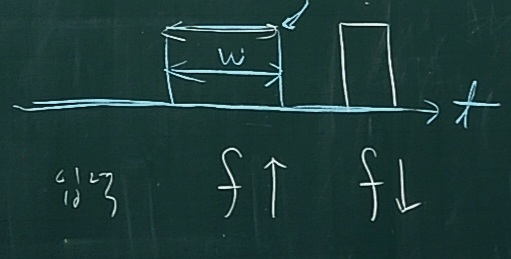 w
t
f↑ f↓